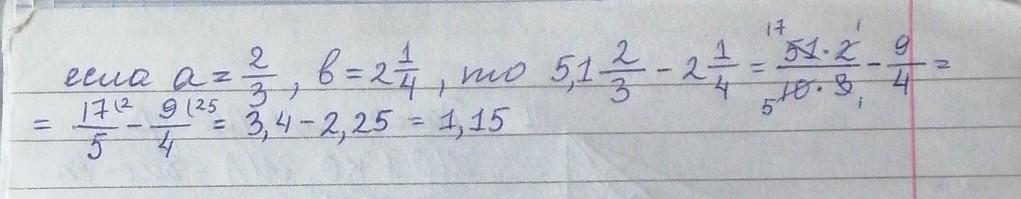 если a = 2/3, b = 2 1/4, то 5,1 2/3 - 2 1/4 = 17 51·2 1 / 5 10·3 1 - 9/4 =
= 17(2/5 - 9(25/4 = 3,4 - 2,25 = 1,15